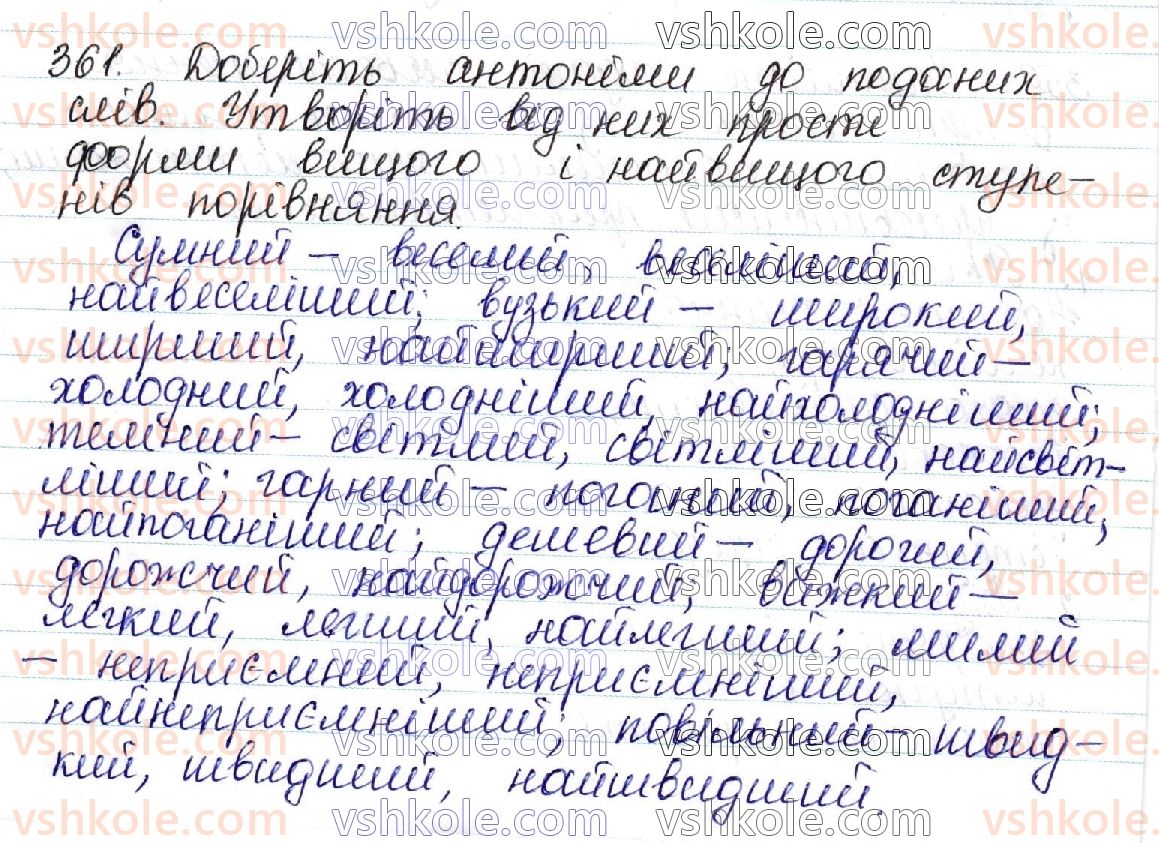 361. Доберіть антоніми до поданих
слів. Утворіть від них прості
форми вищого і найвищого ступе-
нів порівняння.
Сумний – веселий, веселіший,
найвеселіший; вузький – широкий,
ширший, найширший; гарячий –
холодний, холодніший, найхолодніший;
темний – світлий, світліший, найсвіт-
ліший; гарний – поганий, поганіший,
найпоганіший; дешевий – дорогий,
дорожчий, найдорожчий, важкий –
легкий, легший, найлегший; милий
– неприємний, неприємніший,
найнеприємніший; повільний – швид-
кий, швидший, найшвидший.
vshkole.com